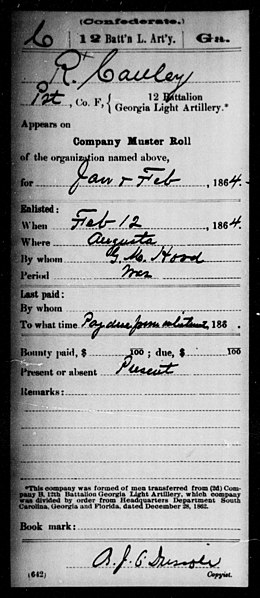 (Confederate.)
C | 12 Batt'n L. Art'y. | Ga.
R. Cauley
Pvt, Co. F, { 12 Battalion
Georgia Light Artillery.*
Appears on
Company Muster Roll
of the organization named above,
for Jan & Feb, 1864.
Enlisted:
When Feb 12, 1864.
Where Augusta
By whom G. M. Hood
Period War
Last paid:
By whom
To what time Pay due from enlistment, 186 .
Bounty paid, $ 100; due, $ 100
Present or absent Present
Remarks:
*This company was formed of men transferred from (2d) Com-
pany B, 12th Battalion Georgia Light Artillery, which company
was divided by order from Headquarters Department South
Carolina, Georgia and Florida, dated December 28, 1862.
Book mark:
(642) Copyist.